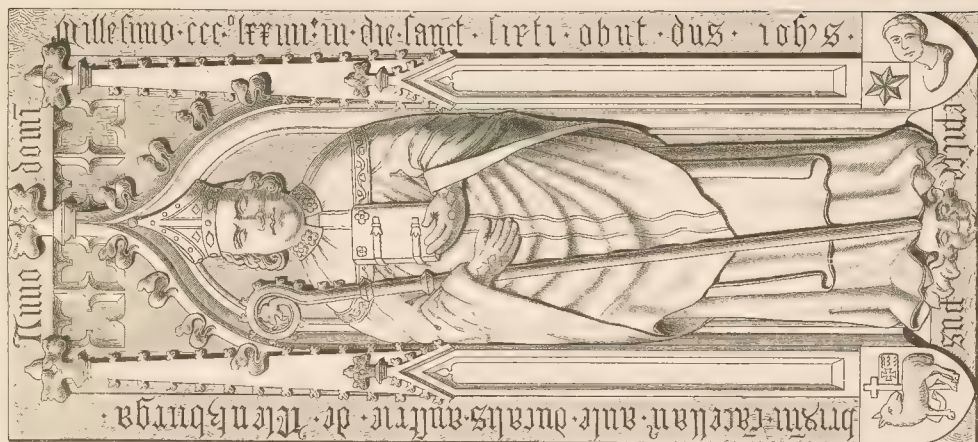 Anno domi
millesimo · ccc° · lxxiiii° · in · die · sanct · sixti · obiit · dns · ioh's ·
episco pus
brixin · cacellari' · aule · ducalis · austrie · de · lentzburga